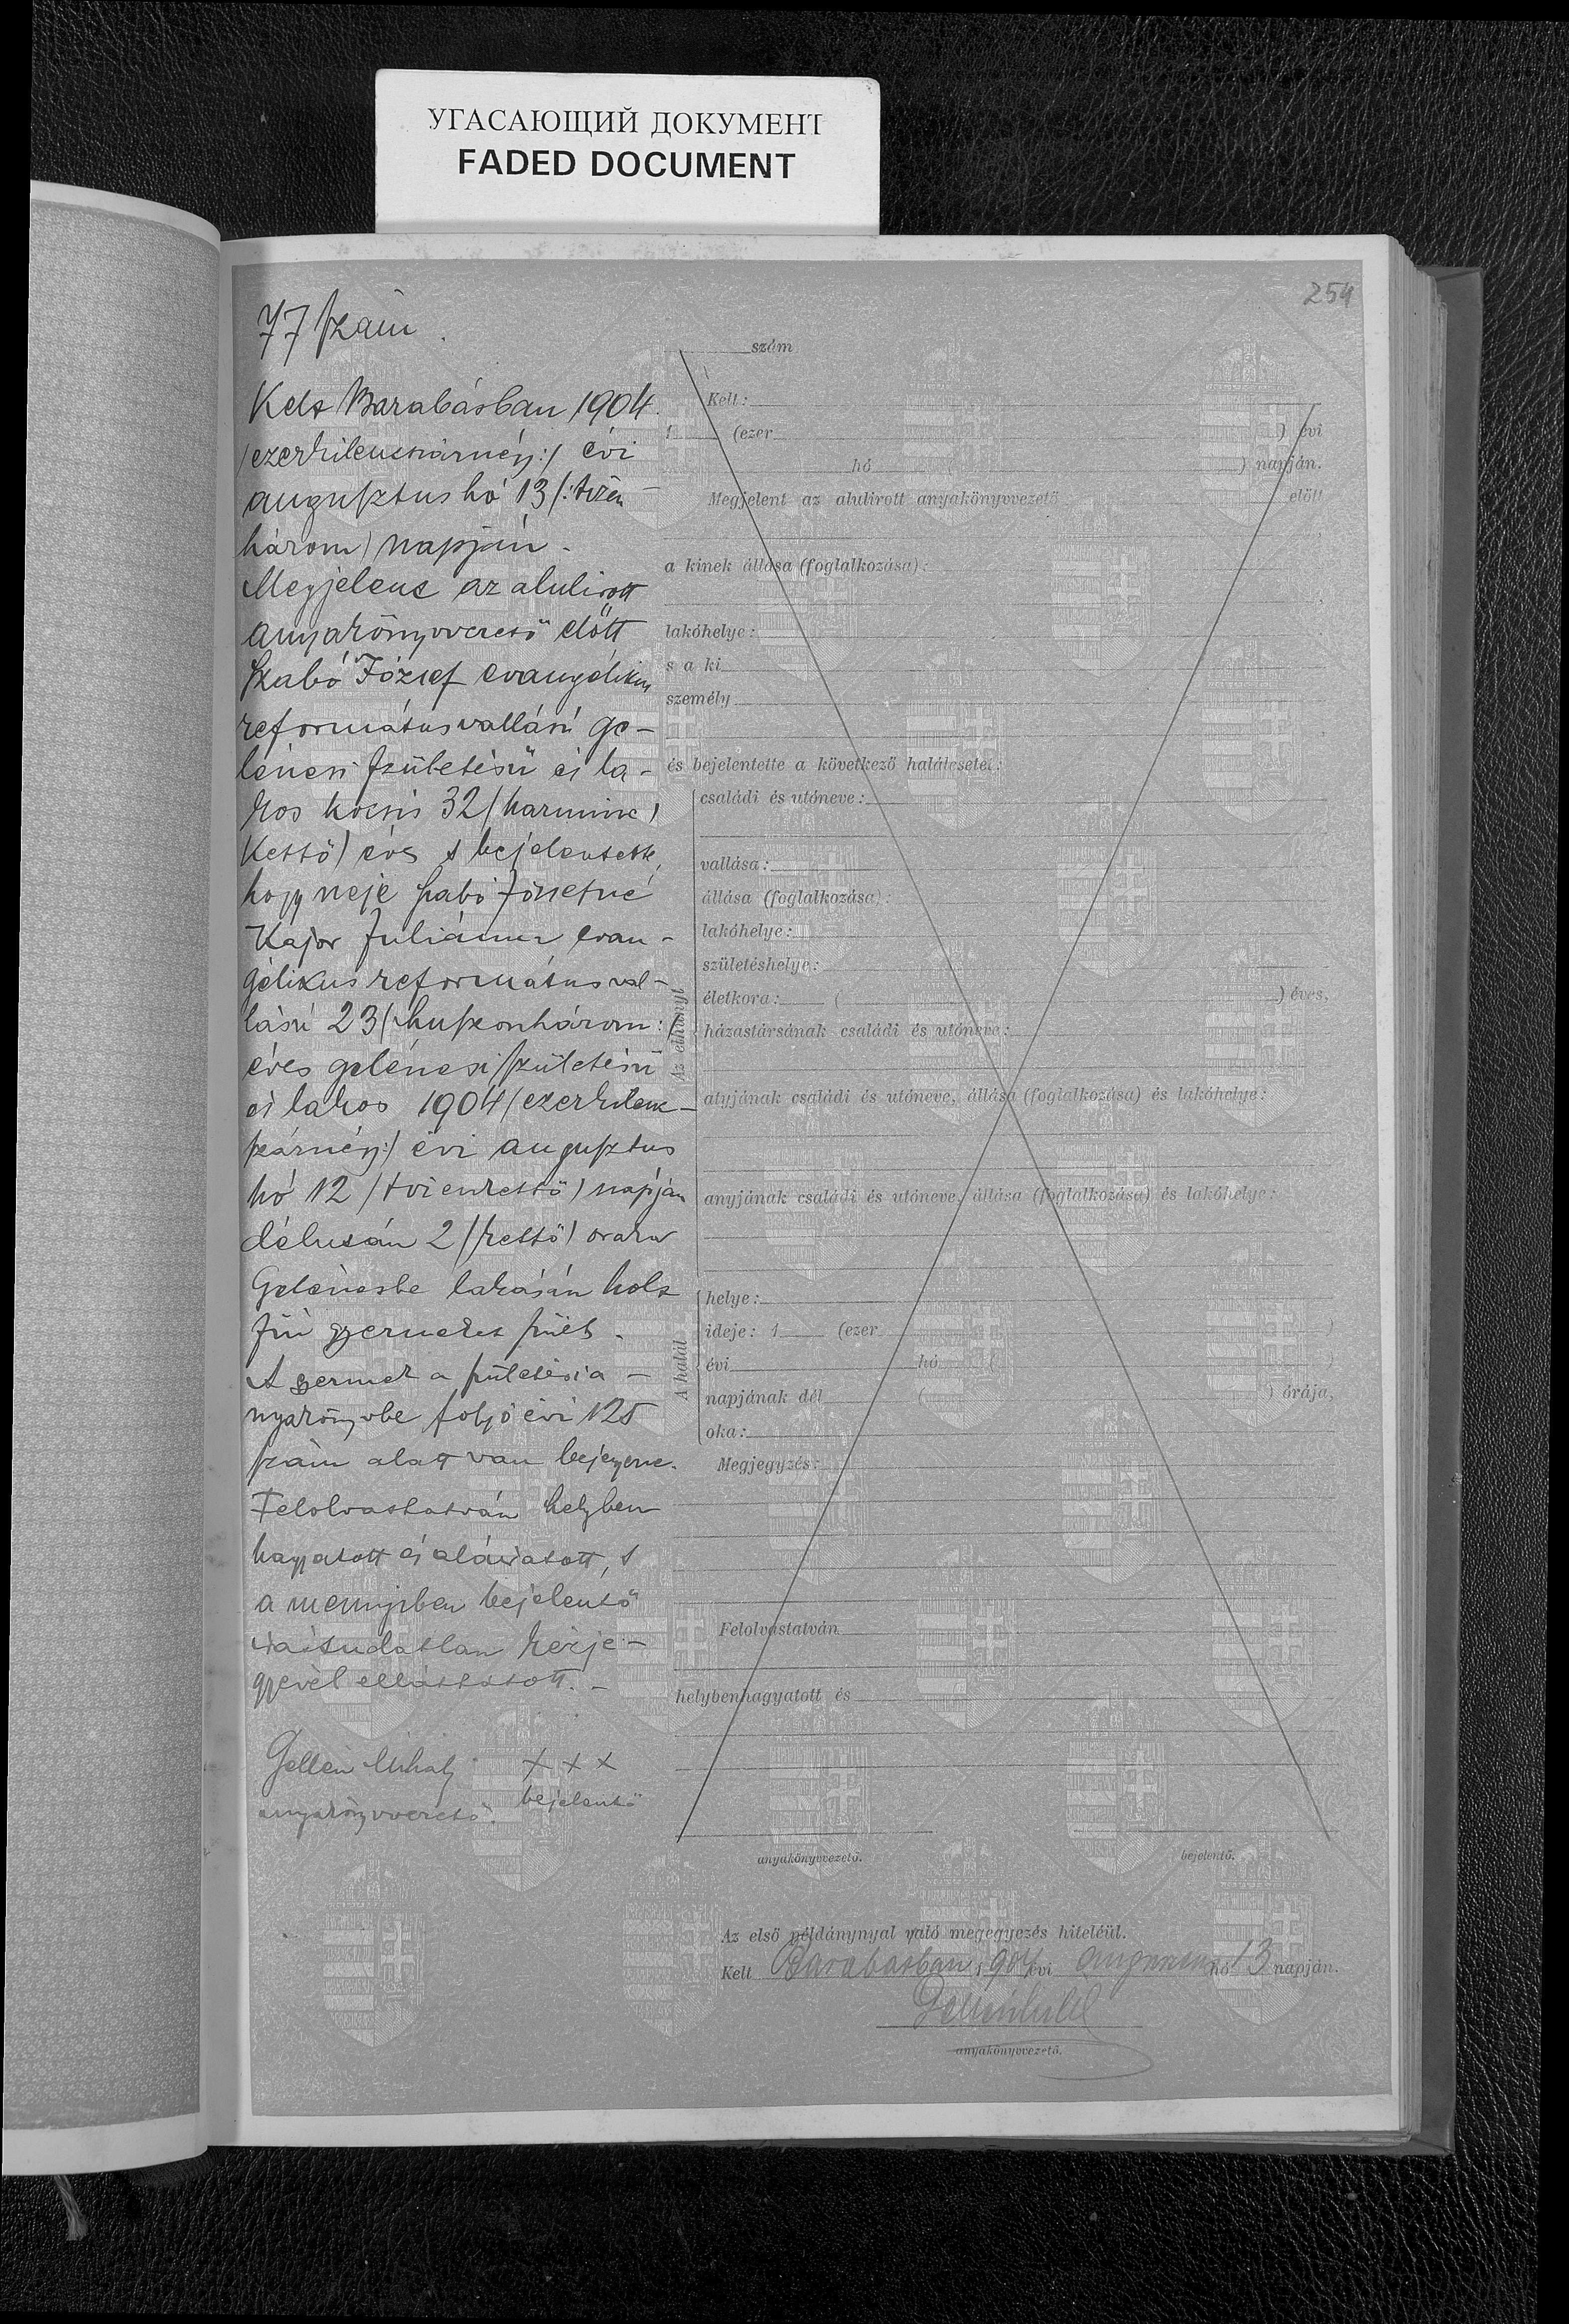 УГАСАЮЩИЙ ДОКУМЕНТ
FADED DOCUMENT
254
77 szám.
Kelt Barabásban 1904.
/ezerkilencszáznégy:/ évi
augusztus hó 13 /:tizen-
három) napján.
Megjelent az alulirott
anyakönyvvezető előtt
Szabó József evangélikus
református vallású ge-
lénesi születésü és la-
kos kocsis 32 (harminc
kettő) éves s bejelentette,
hogy neje Szabó Józsefné
Kajor Juliánna evan-
gélikus református val-
lású 23 (huszonhárom:/
éves gelénesi születésü
és lakos 1904 (ezerkilenc-
száznégy:/ évi augusztus
hó 12 (tizenkettő) napján
délután 2 (kettő) órakor
Gelénesbe lakásán holt
fiú gyermeket szült.
A gyermek a születési a-
nyakönyvbe folyó évi 125
szám alatt van bejegyezve.
Felolvastatván helyben
hagyatott és aláiratott, s
a mennyiben bejelentő
irástudatlan kézje-
gyével elláttatott. -
Gellén Mihály
anyakönyvvezető.
+ + +
bejelentő
szám
Kelt:
1 (ezer ) évi
hó ( ) napján.
Megjelent az alulirott anyakönyvvezető előtt
a kinek állása (foglalkozása):
lakóhelye:
s a ki
személy
és bejelentette a következő halálesetet:
Az elhunyt
családi és utóneve:
vallása:
állása (foglalkozása):
lakóhelye:
születéshelye:
életkora: ( ) éves,
házastársának családi és utóneve:
atyjának családi és utóneve, állása (foglalkozása) és lakóhelye:
anyjának családi és utóneve, állása (foglalkozása) és lakóhelye:
A halál
helye:
ideje: 1 (ezer )
évi hó ( )
napjának dél ( ) órája,
oka:
Megjegyzés:
Felolvastatván
helybenhagyatott és
anyakönyvvezető. bejelentő.
Az első példánynyal való megegyezés hiteléül.
Kelt Barabásban 1904 évi augusztus hó 13 napján.
anyakönyvvezető.